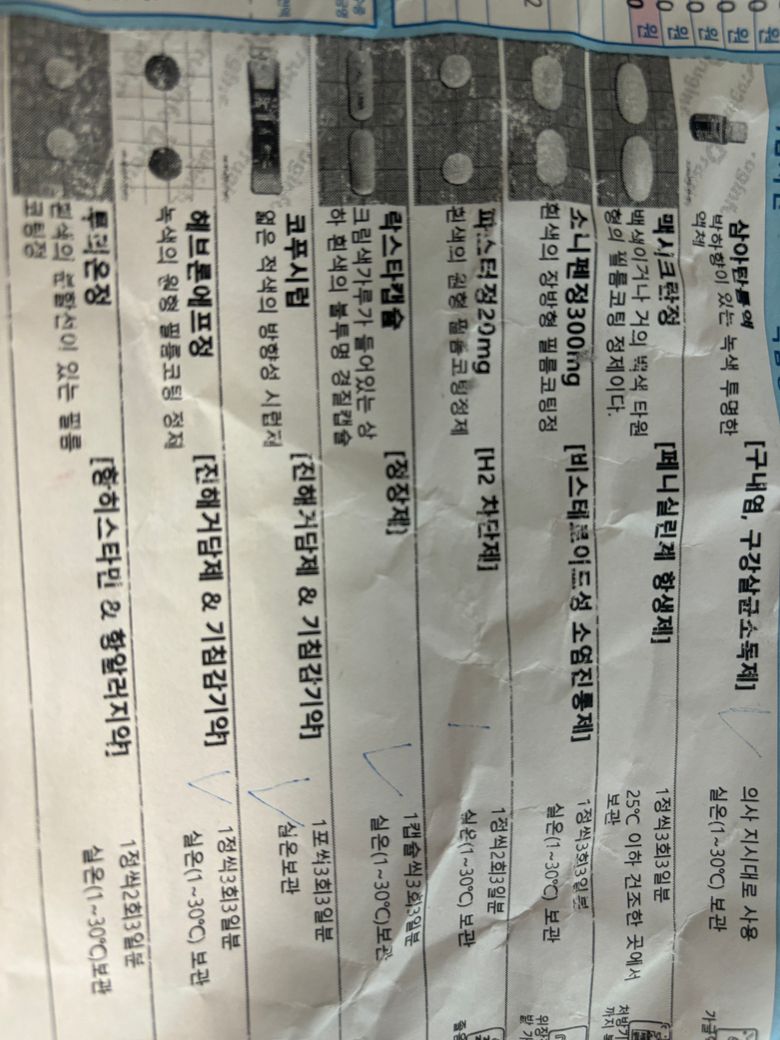 삼아탄툼액 [구내염, 구강살균소독제] 의사 지시대로 사용
박하향이 있는 녹색 투명한 실온(1~30℃) 보관
액체
맥시크란정 [페니실린계 항생제] 1정씩3회3일분
백색이거나 거의 백색 타원 25℃ 이하 건조한 곳에서
형의 필름코팅 정제이다. 보관
소니펜정300mg [비스테로이드성 소염진통제] 1정씩3회3일분
흰색의 장방형 필름코팅정 실온(1~30℃) 보관
[H2 차단제] 1정씩2회3일분
흰색의 원형 필름코팅정제 실온(1~30℃) 보관
락스타캡슐 [정장제] 1캡슐씩3회3일분
크림색가루가 들어있는 상 실온(1~30℃)보관
하 흰색의 불투명 경질캡슐
코푸시럽 [진해거담제 & 기침감기약] 1포씩3회3일분
엷은 적색의 방향성 시럽제 실온보관
헤브론에프정 [진해거담제 & 기침감기약] 1정씩3회3일분
녹색의 원형 필름코팅 정제 실온(1~30℃) 보관
[항히스타민 & 항알러지약] 1정씩2회3일분
흰색의 분할선이 있는 필름 실온(1~30℃)보관
코팅정